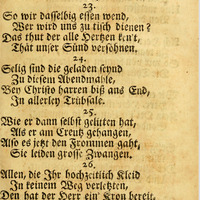 23.
So wir dasselbig essen wend,
Wer wird uns zu tisch dienen?
Das thut der alle Hertzen kent,
That unser Sünd versöhnen.
24.
Selig sind die geladen seynd
Zu diesem Abendmahle,
Bey Christo harren biß ans End,
In allerley Trübsale.
25.
Wie er dann selbst gelitten hat,
Als er am Creutz gehangen,
Also es jetzt den Frommen gaht,
Sie leiden grosse Zwangen.
26.
Allen, die Ihr hochzeitlich Kleid
In keinem Weg verletzten,
Den hat der Herr ein' Kron bereit,